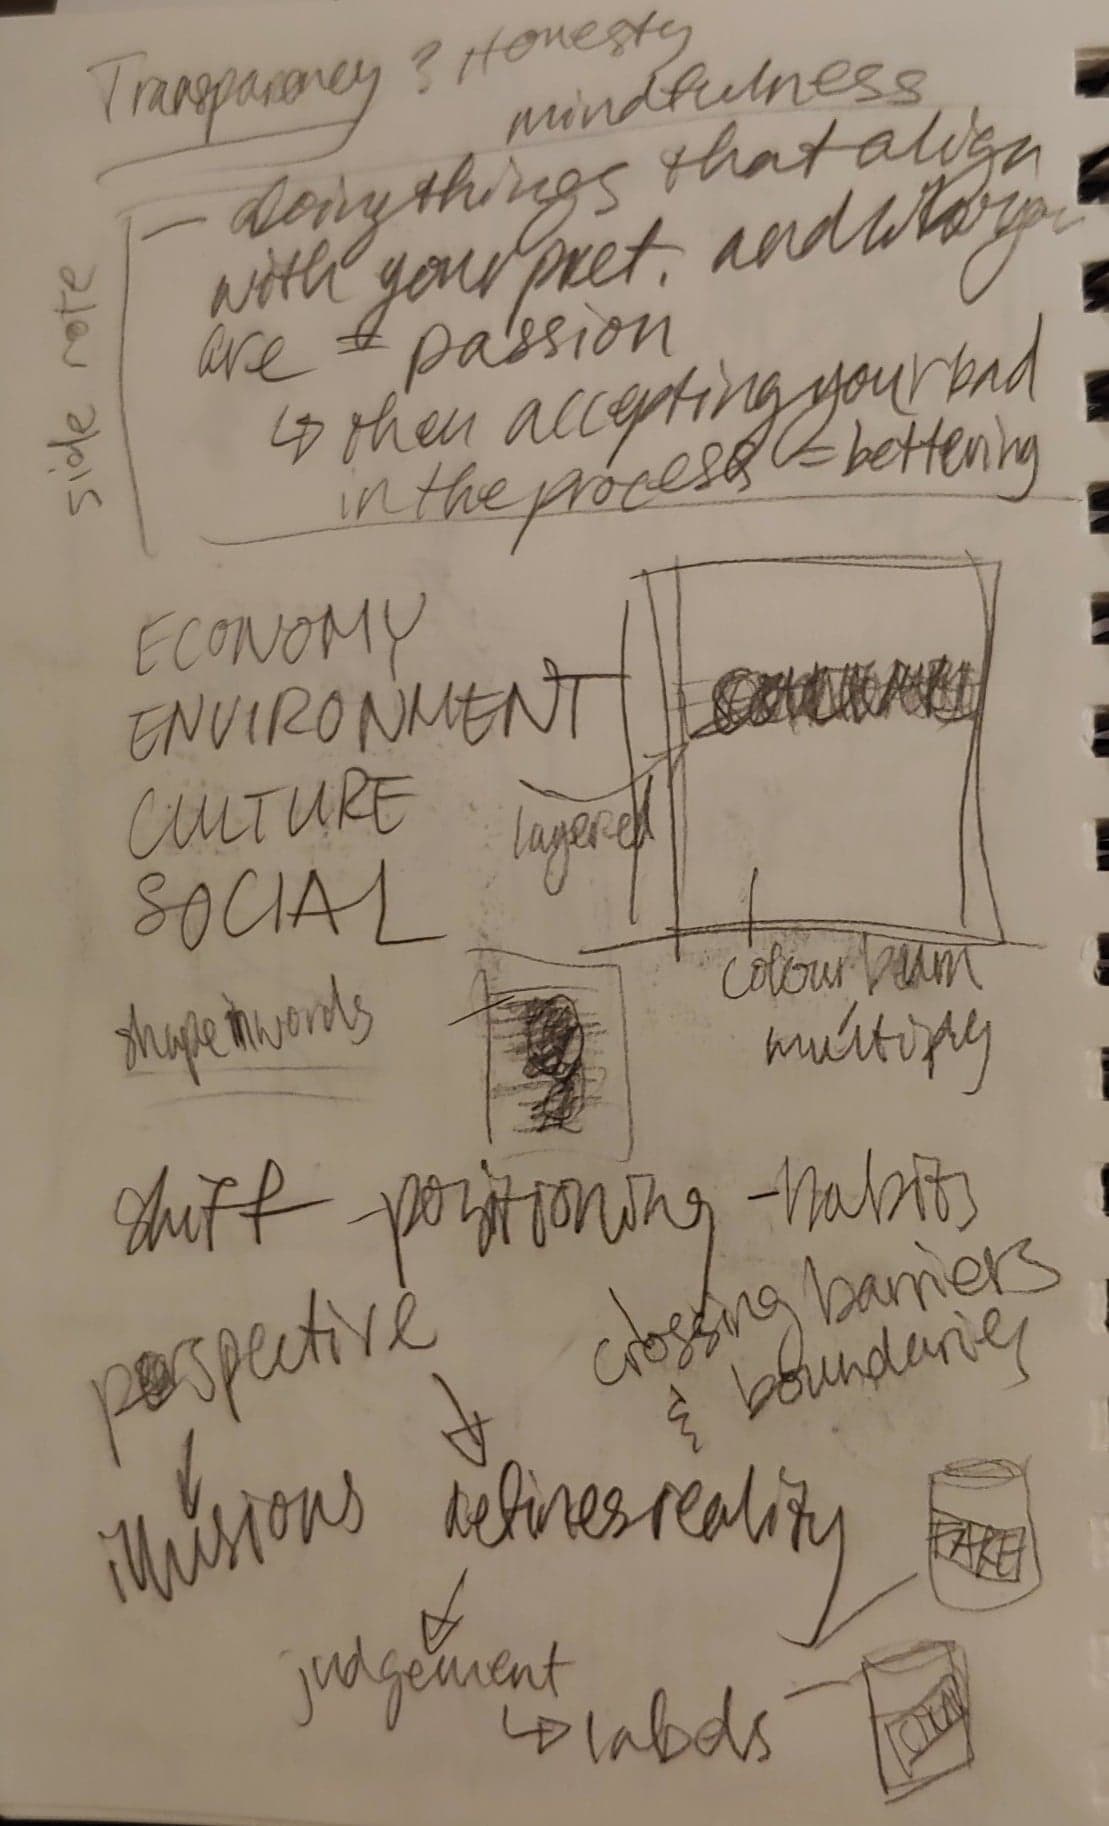 Transparency & Honesty
mindfulness
side note
- doing things that align
with your and who you
are = passion
↳ then accepting your bad
in the process = bettering
ECONOMY
ENVIRONMENT
CULTURE
SOCIAL
layered
colour
multiply
shape in words
shift - positioning - habits
perspective
crossing barriers
& boundaries
illusions
defines reality
FAKE
judgement
↳ labels